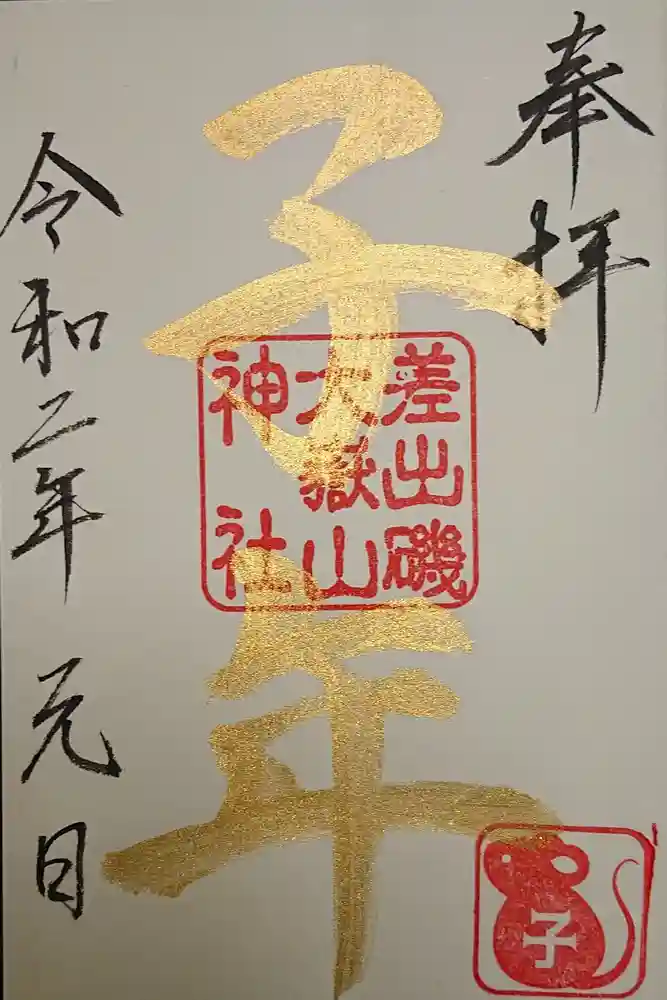 奉拝
子年
差出磯
大嶽山
神社
令和二年 元日
子